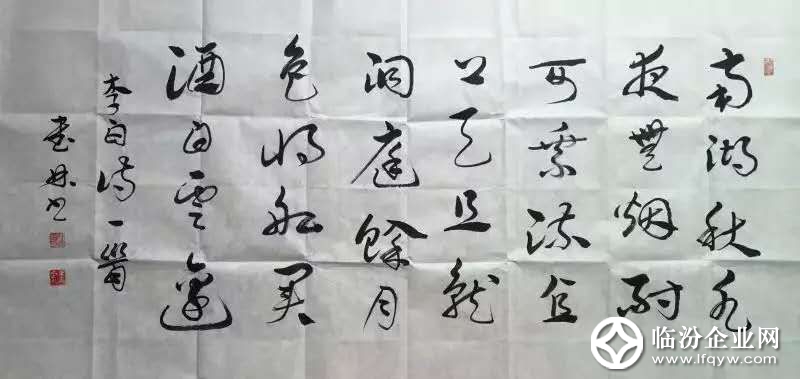 南湖秋水
夜無烟耐
可乘流直
上天且就
洞庭餘月
色將船買
酒白雲邊
李白诗一首
书
临汾企业网
www.lfqyw.com